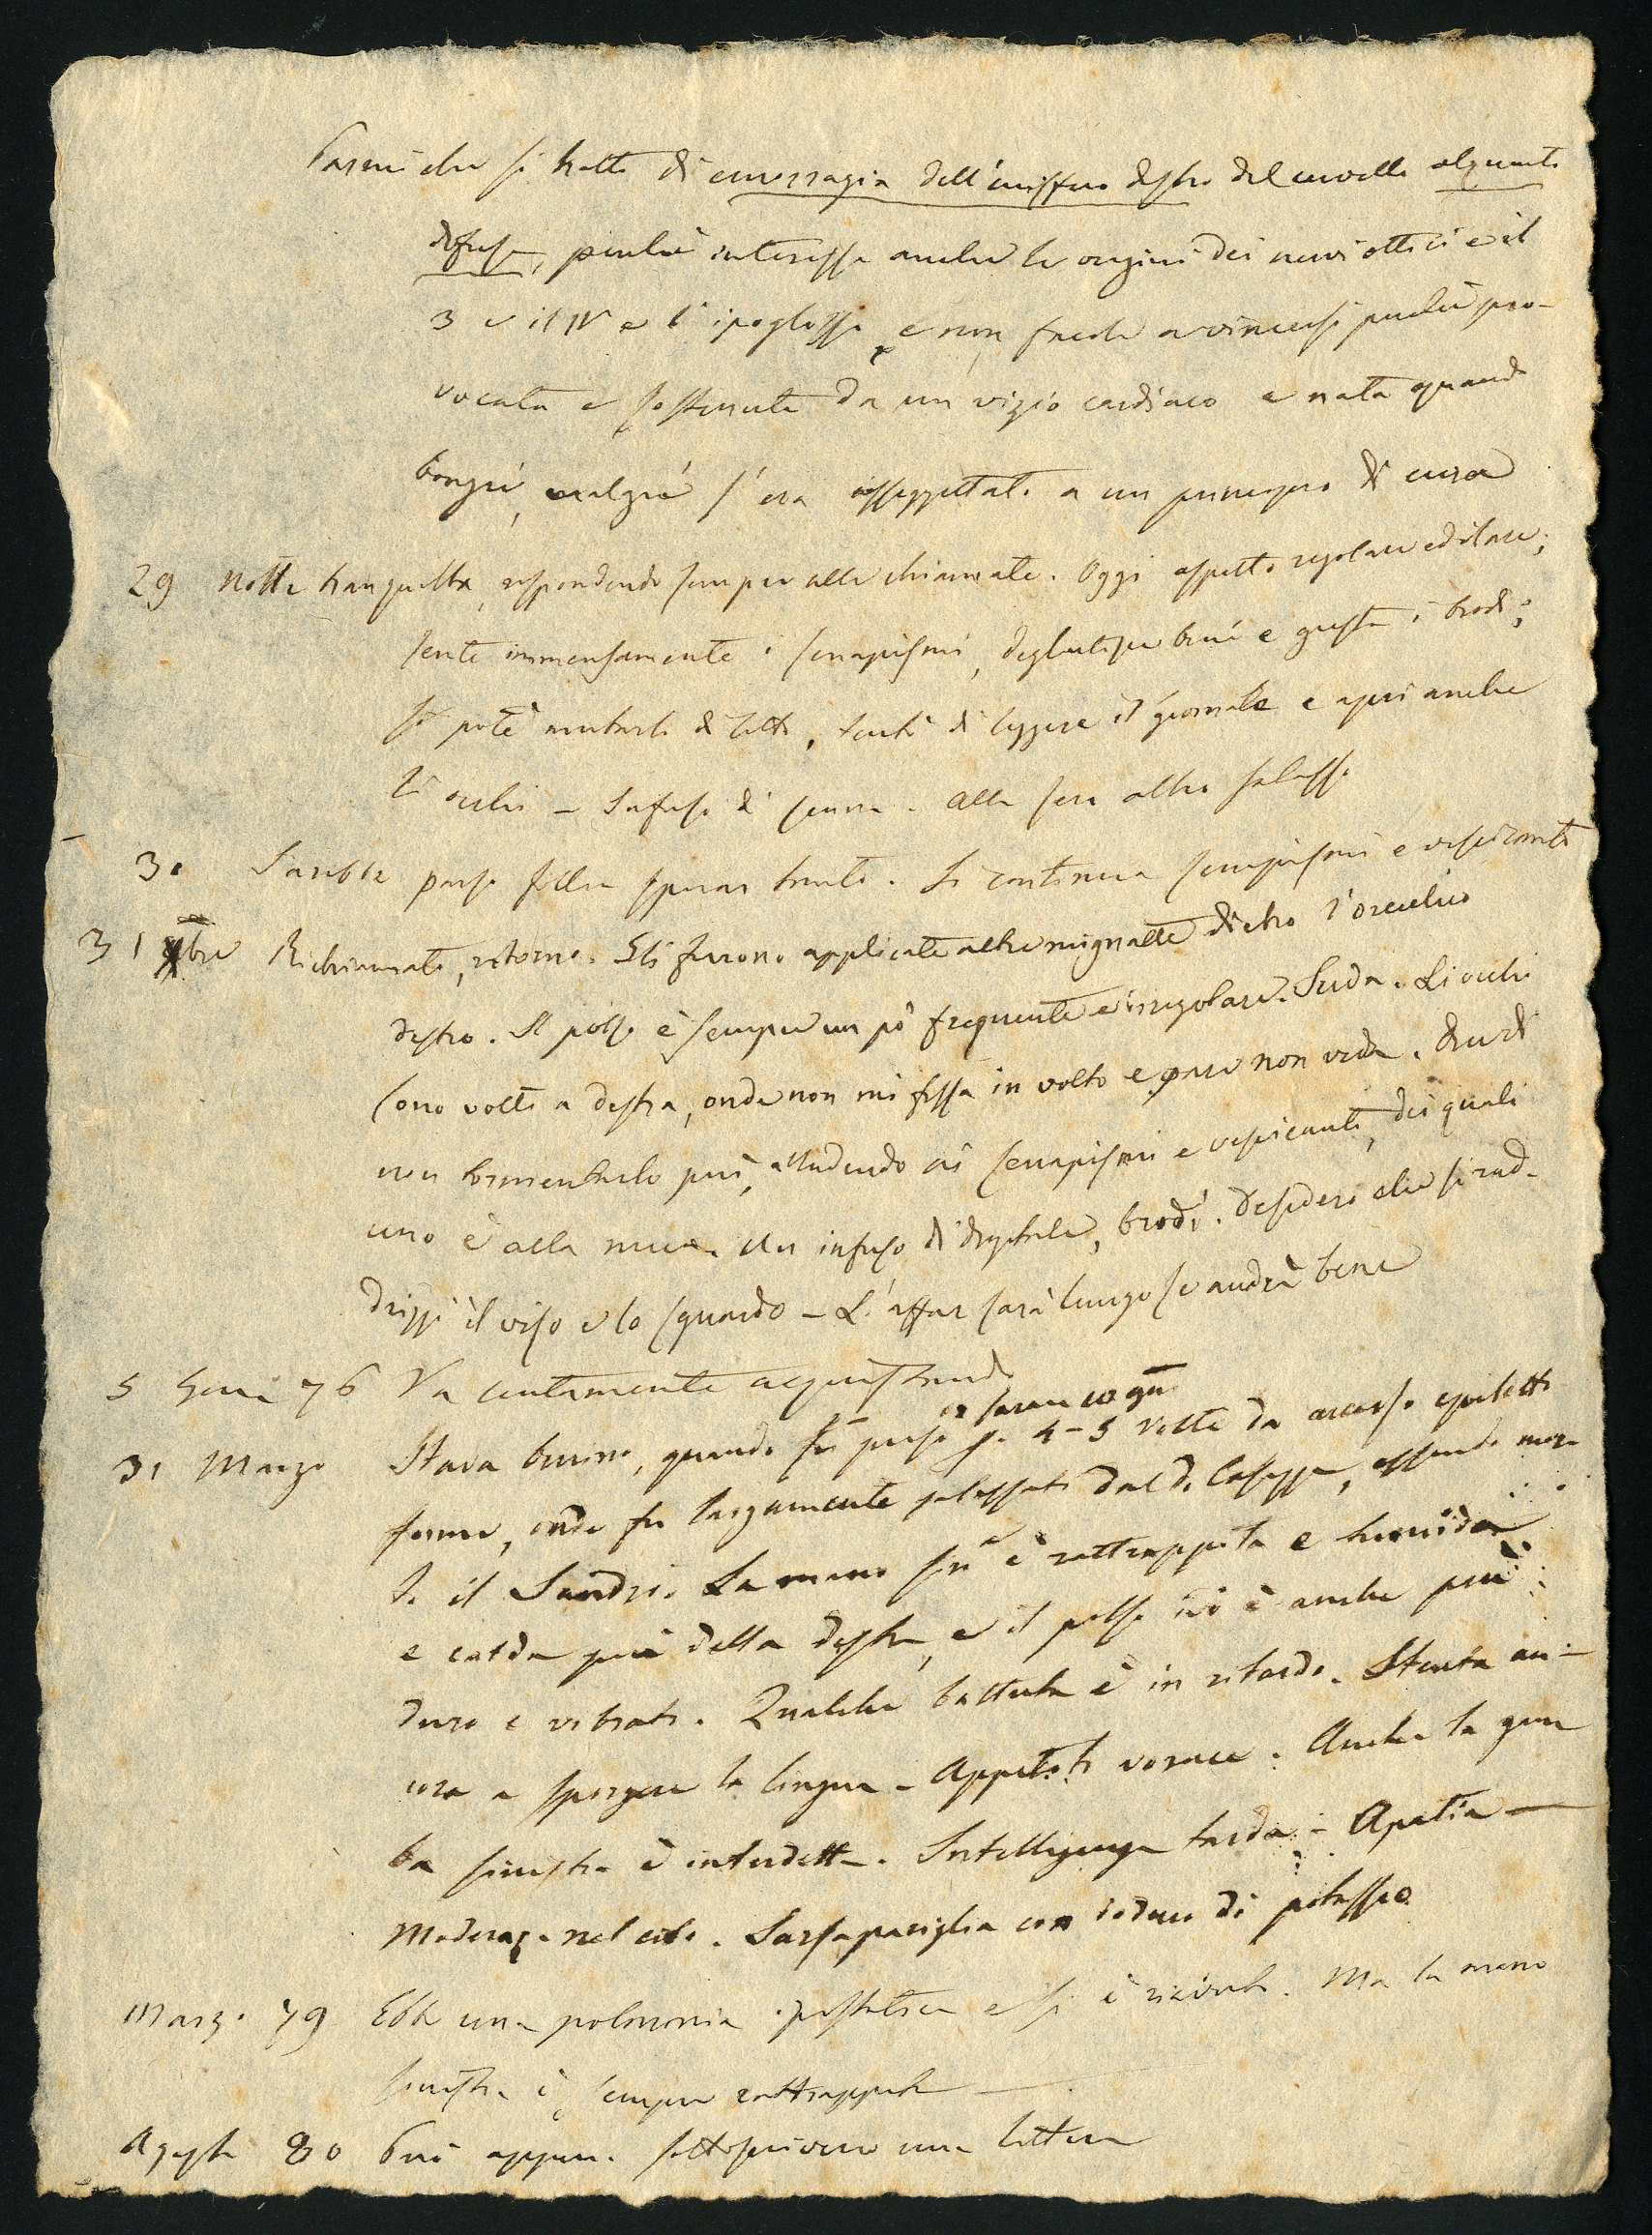 Parmi che si tratti di emorragia dell'emisfero destro del cervello alquanto
diffusa, perchè interessa anche le origini dei nervi ottici e il
3 e il IV e l'ipoglosso e non facile a vincersi perchè pro-
vocata e sostenuta da un vizio cardiaco e nata quando
s'era assoggettato a un principio di cura
29 Notte tranquilla, rispondendo sempre alle chiamate. Oggi aspetto regolare ed ilare;
sente immensamente i senapismi, deglutisce bene e gusta i brodi;
si potè mutarlo di letto, tentò di leggere il giornale e aprì anche
li occhi – Infuso di senna. Alla sera altro salasso
30 Sarebbe parso follia sperar tanto. Si continua senapismi e vescicanti
31 xbre Richiamato, ritorno. Gli furono applicate altre mignatte dietro l'orecchio
destro. Il polso è sempre un pò frequente e irregolare. Suda. Li occhi
sono volti a destra, onde non mi fissa in volto e pare non veda. di
non tormentarlo più, alludendo ai senapismi e vescicanti, dei quali
uno è alla nuca. Un infuso di digitale, brodi. Desidero che si rad-
drizzi il viso e lo sguardo – L'affar sarà lungo se andrà bene
5 Genn 76 Va lentamente acquistando
31 Marzo Stava benino, quando fu preso p. 4-5 volte da accesso epiletti
forme, onde fu largamente salassato dal d. essendo mor
to il Sandri. La mano sin è rattrappita e tumida
e calda più della destra, e il polso ivi è anche più
duro e vibrato. Qualche battuta è in ritardo. Stenta an-
cora a sporgere la lingua – Appetito vorace. Anche la gam
ba sinistra è interdetta. Intelligenza tarda – Apatia –
Moderaz. nel cibo. Sarsapariglia con ioduro di potassio
Marzo 79 Ebbe una polmonia ipostatica e si è riavuto. Ma la mano
sinistra è sempre rattrappita –
Agosto 80 Può appena sottoscrivere una lettera